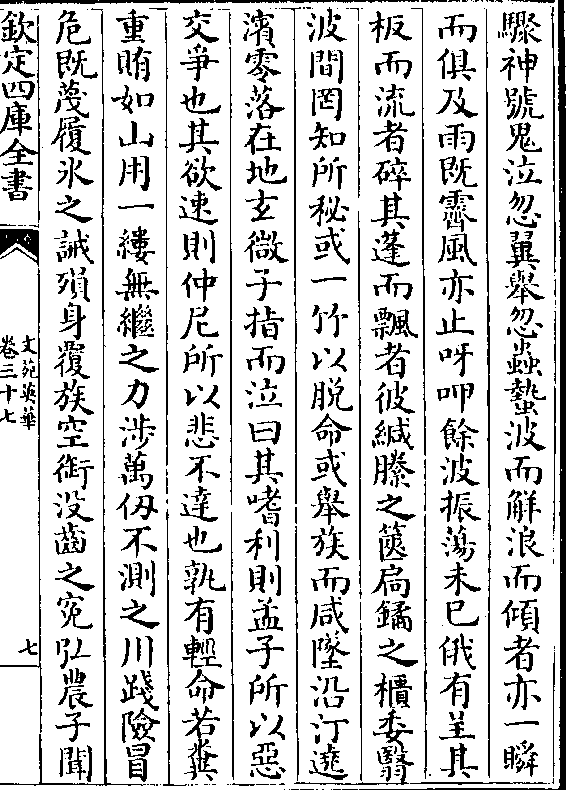 驟神號鬼泣忽翼舉忽蟲蟄波而解浪而傾者亦一瞬
而俱及雨既霽風亦止呀呷餘波振蕩未已俄有呈其
板而流者碎其蓬而飄者彼緘縢之篋扃鐍之櫃委翳
波間罔知所秘或一竹以脱命或舉族而咸墜沿汀遶
濱零落在地玄微子指而泣曰其嗜利則孟子所以惡
交爭也其欲速則仲尼所以悲不達也孰有輕命若糞
重賄如山用一縷無繼之力涉萬仭不測之川踐險冒
危既蔑履氷之誡殞身覆族空銜没齒之寃弘農子聞
欽定四庫全書
文苑英華
卷三十七
七